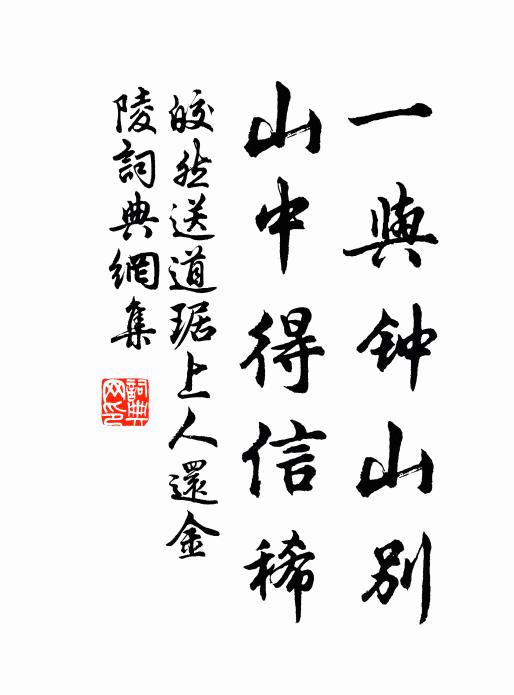 一與钟山别
山中得信稀
皎然送道琚上人還金
陵詞典網集
詞典網印